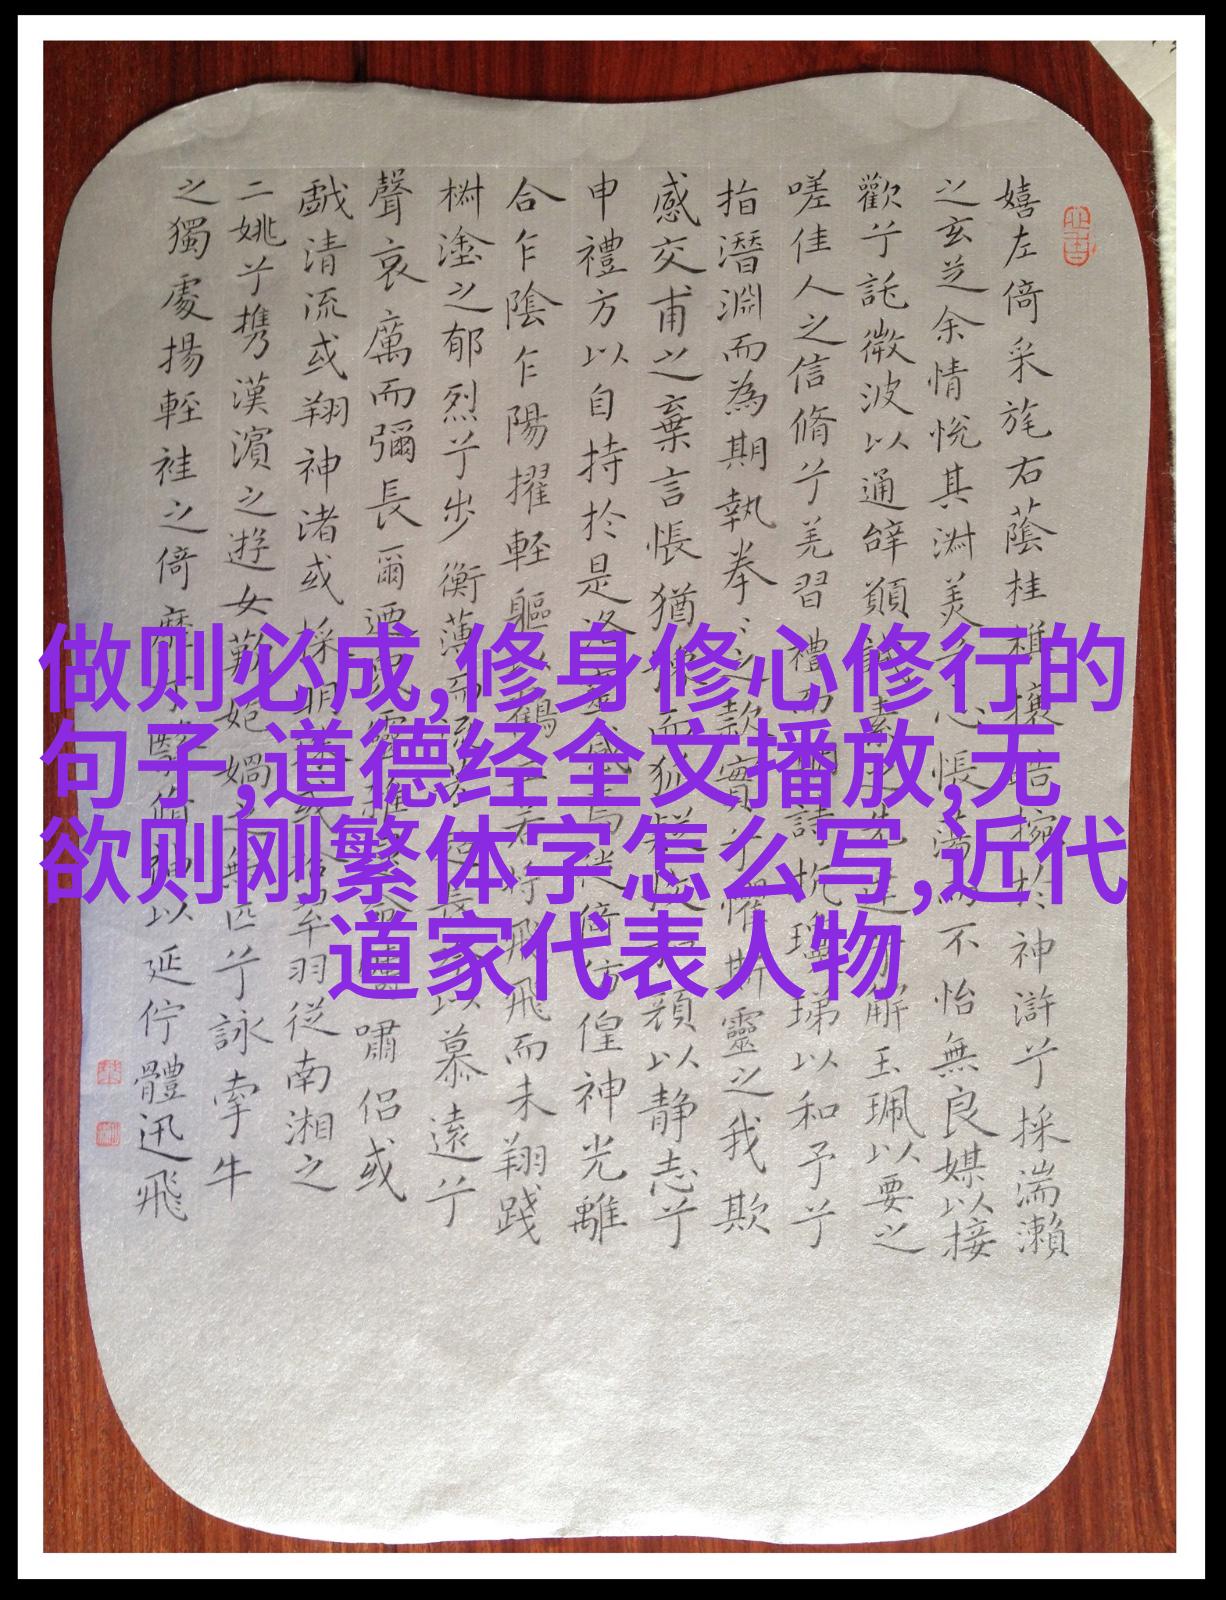 做则必成,修身修心修行的
句子,道德经全文播放,无
欲则刚繁体字怎么写,近代
道家代表人物
嬉左倚采旄右蔭桂攘於神滸兮採湍瀬
之玄芝余情悅其淋美心悵蕩不怡無良媒以接
歡兮託微波以通辝願素先達解玉珮以要之
嗟佳人之信脩兮羌習禮詩抗以和予兮
指潛淵而為期執拳之款實兮懼斯靈之我欺
感交甫之棄言悵猶而狐顏以静志兮
申禮方以自持於是洛感焉倚仿偟神光離
合乍陰乍陽擢輕軀以鶴若將飛而未翔踐
椒塗之郁烈兮步衡薄而長以慕遠兮
聲哀厲而彌長爾迺靈嘯侶或
戲清流或翔神渚或採明或羽從南湘之
二姚兮攜漢濱之遊女歎媧之無匹兮詠牽牛
之獨處揚輕袿之倚靡以延佇體迅飛